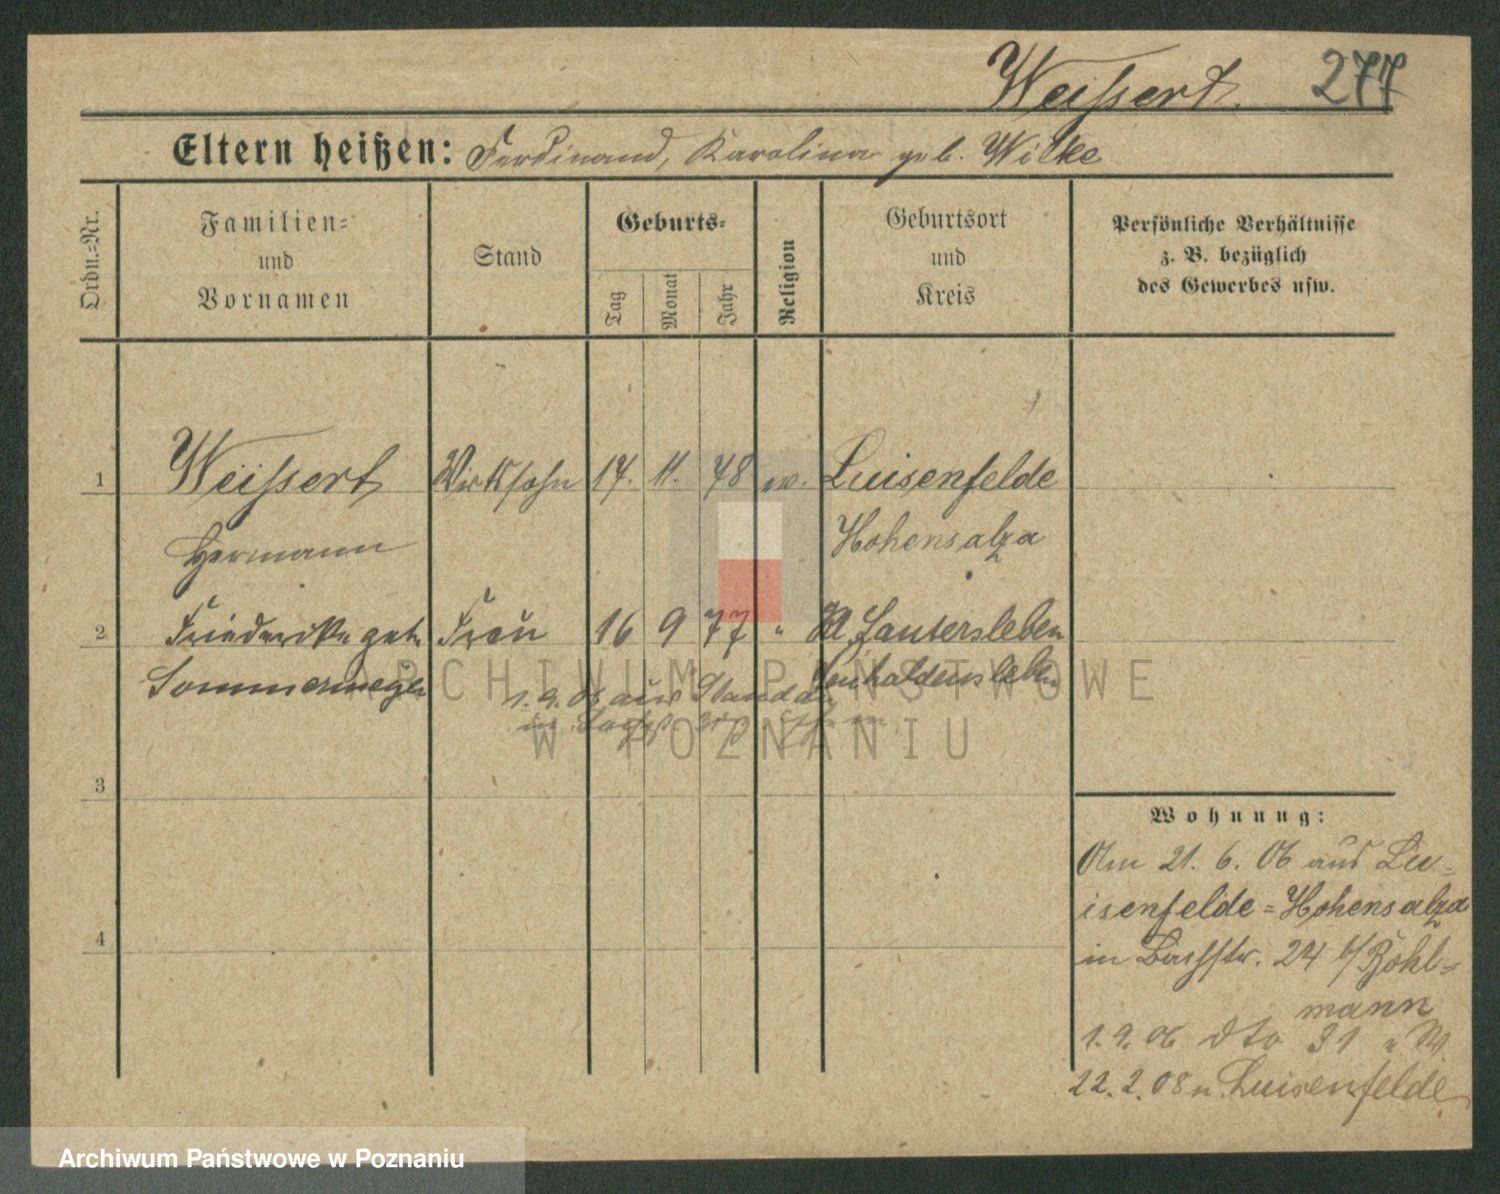 Weissert. 277
Eltern heißen: Ferdinand, Karolina geb. Wilke
Ordn.=Nr.
Familien=
und
Vornamen
Stand
Geburts=
Tag
Monat
Jahr
Religion
Geburtsort
und
Kreis
Persönliche Verhältnisse
z. B. bezüglich
des Gewerbes usw.
1 Weissert Wirtssohn 14. 11. 78 ev. Luisenfelde
Hermann Hohensalza
2 Friederike geb. Frau 16 9 77 " Kl
Sommermeyer
1. 9. 06 aus
in
3
4
Wohnung:
Am 21. 6. 06 aus Lu-
isenfelde=Hohensalza
in 24 b/ Pohl=
mann
1. 9. 06 dto 31
22. 2. 08 n. Luisenfelde
ARCHIWUM PAŃSTWOWE
W POZNANIU
Archiwum Państwowe w Poznaniu